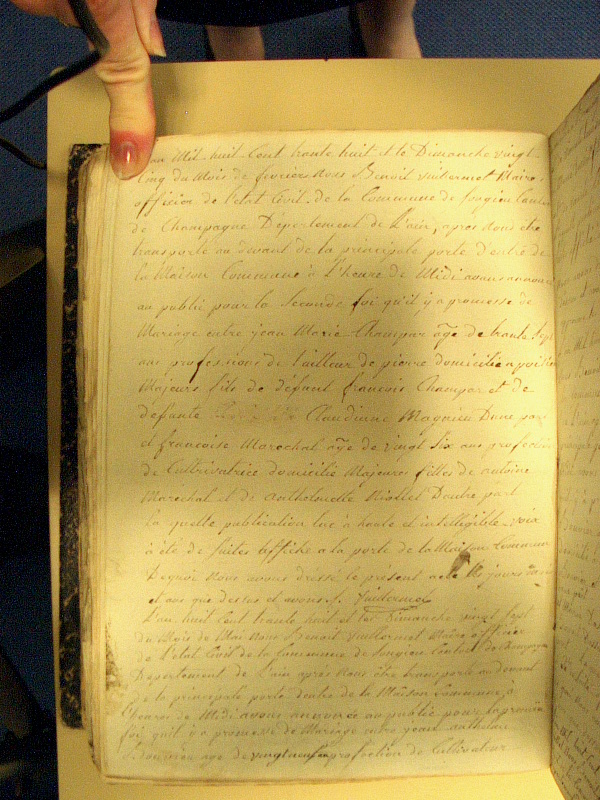 an Mil huit Cent trante huit et le Dimanche vingt
Cinq du Mois de fevrier Nous Benoit vuitermot Maire
officier de l'etat Civil de la Commune de songieu Canton
de Champagne Département de L'ain, apres nous etre
transporté au devant de la principale porte d'entré de
la Maison Commune à L'heure de Midi avons annoncé
au public pour la Seconde foi qu'il y a promesse de
Mariage entre jean Marie Champar âge de trante Sept
ans profession de tailleur de pierre domicilié a
Majeurs fils de défunt francois Champar et de
défunte Claudiane Magnieu Dune part
et francoise Marechal âge de vingt Six ans profession
de Cultivatrice domicilié Majeures filles de antoine
Marechal et de anthelmette Dautre part
la quelle publication lue à haute et intellegible voix
à été de suites affiche a la porte de la Maison Commune
Dequoi Nous avons dressé le présent acte les jours
et ans que dessus et avons
L'an huit Cent trante huit et le Dimanche vingt sept
du Mois de Mai Nous Benoit Vuillermet Maire officier
de l'etat Civil de la Commune de Songieu Canton de Champagne
Departement de L'ain après Nous être transporté au devant
de la principale porte dentré de la Maison Commune à
L'heures de Midi avons annoncée au public pour la premiere
foi quil y a promesse de Mariage entre jean anthelme
age de vingtneuf ans profession de Cultivateur